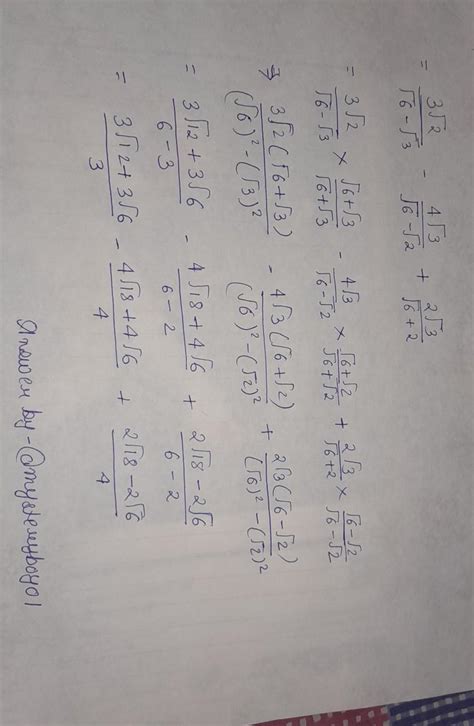 = 3√2/(√6-√3) - 4√3/(√6-√2) + 2√3/(√6+2)
= 3√2/(√6-√3) × (√6+√3)/(√6+√3) - 4√3/(√6-√2) × (√6+√2)/(√6+√2) + 2√3/(√6+2) × (√6-√2)/(√6-√2)
⇒ 3√2(√6+√3)/((√6)²-(√3)²) - 4√3(√6+√2)/((√6)²-(√2)²) + 2√3(√6-√2)/((√6)²-(√2)²)
= (3√12+3√6)/(6-3) - (4√18+4√6)/(6-2) + (2√18-2√6)/(6-2)
= (3√12+3√6)/3 - (4√18+4√6)/4 + (2√18-2√6)/4
Answer by-